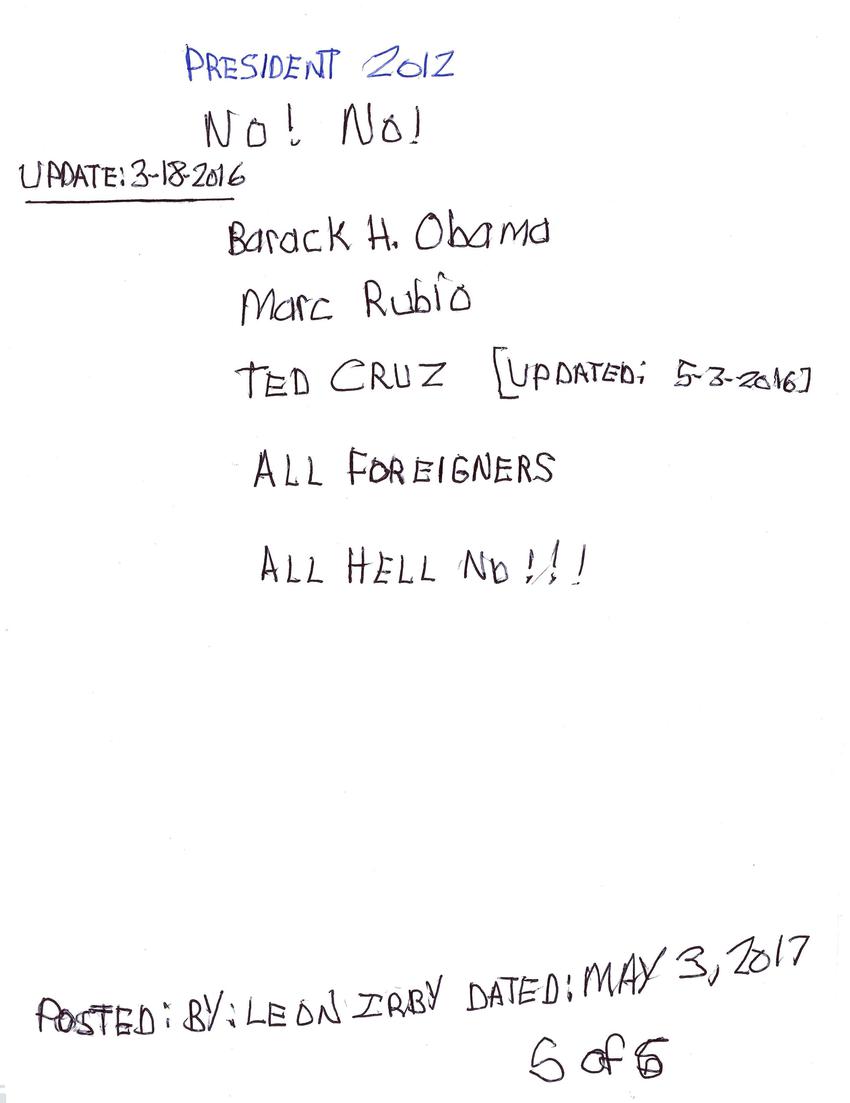 PRESIDENT 2012
No! No!
UPDATE: 3-18-2016
Barack H. Obama
Marc Rubio
TED CRUZ [UPDATED: 5-3-2016]
ALL FOREIGNERS
ALL HELL No!!!
POSTED: BY: LEON IRBY DATED: MAY 3, 2017
5 of